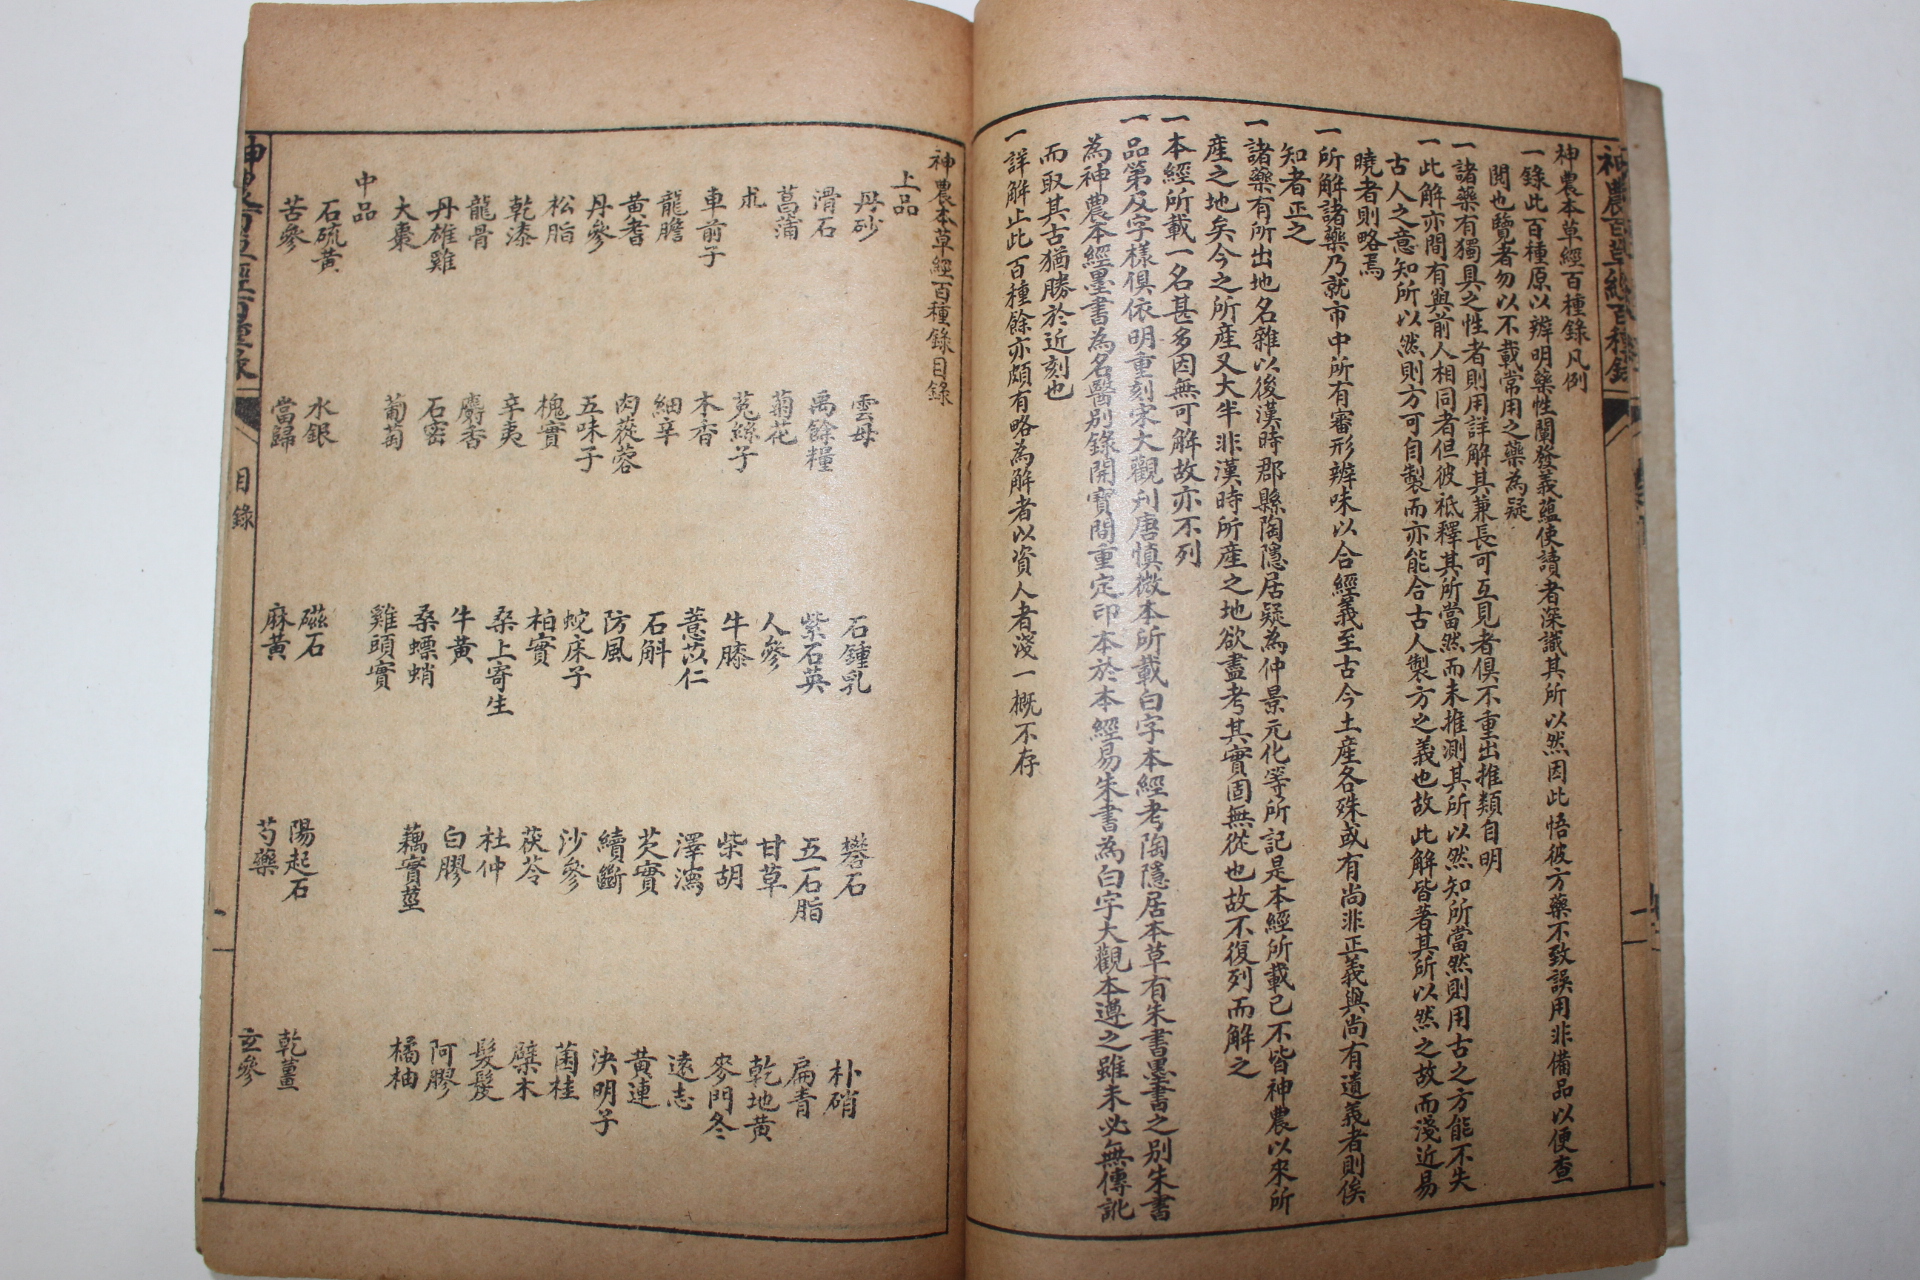 神農本草經百種錄凡例
一錄此百種原以辨明藥性闡發義蘊使讀者深識其所以然因此悟彼方藥不致誤用非備品以便查
閱也覽者勿以不載常用之藥為疑
一諸藥有獨具之性者則用詳解其兼長可互見者俱不重出推類自明
一此解亦間有與前人相同者但彼祗釋其所當然而未推測其所以然知所當然則用古之方能不失
古人之意知所以然則方可自製而亦能合古人製方之義也故此解皆著其所以然之故而淺近易
曉者則略焉
一所解諸藥乃就市中所有審形辨味以合經義至古今土產各殊或有尚非正義與尚有遺義者則俟
知者正之
一諸藥有所出地名雜以後漢時郡縣陶隱居疑為仲景元化等所記是本經所載已不皆神農以來所
產之地矣今之所產又大半非漢時所產之地欲盡考其實固無從也故不復列而解之
一本經所載一名甚多因無可解故亦不列
一品第及字樣俱依明重刻宋大觀刊唐慎微本所載白字本經考陶隱居本草有朱書墨書之別朱書
為神農本經墨書為名醫別錄開寶間重定印本於本經易朱書為白字大觀本遵之雖未必無傳訛
而取其古猶勝於近刻也
一詳解止此百種餘亦頗有略為解者以資人者淺一概不存
神農本草經百種錄目錄
上品
丹砂 雲母 石鍾乳 礬石 朴硝
滑石 禹餘糧 紫石英 五石脂 扁青
菖蒲 菊花 人參 甘草 乾地黃
朮 菟絲子 牛膝 柴胡 麥門冬
車前子 木香 薏苡仁 澤瀉 遠志
龍膽 細辛 石斛 芡實 黃連
黃耆 肉蓯蓉 防風 續斷 決明子
丹參 五味子 蛇床子 沙參 菌桂
松脂 槐實 柏實 茯苓 櫱木
乾漆 辛夷 桑上寄生 杜仲 髮髲
龍骨 麝香 牛黃 白膠 阿膠
丹雄雞 石蜜 桑螵蛸 藕實莖 橘柚
大棗 葡萄 雞頭實
中品
石硫黃 水銀 磁石 陽起石 乾薑
苦參 當歸 麻黃 芍藥 玄參
目錄